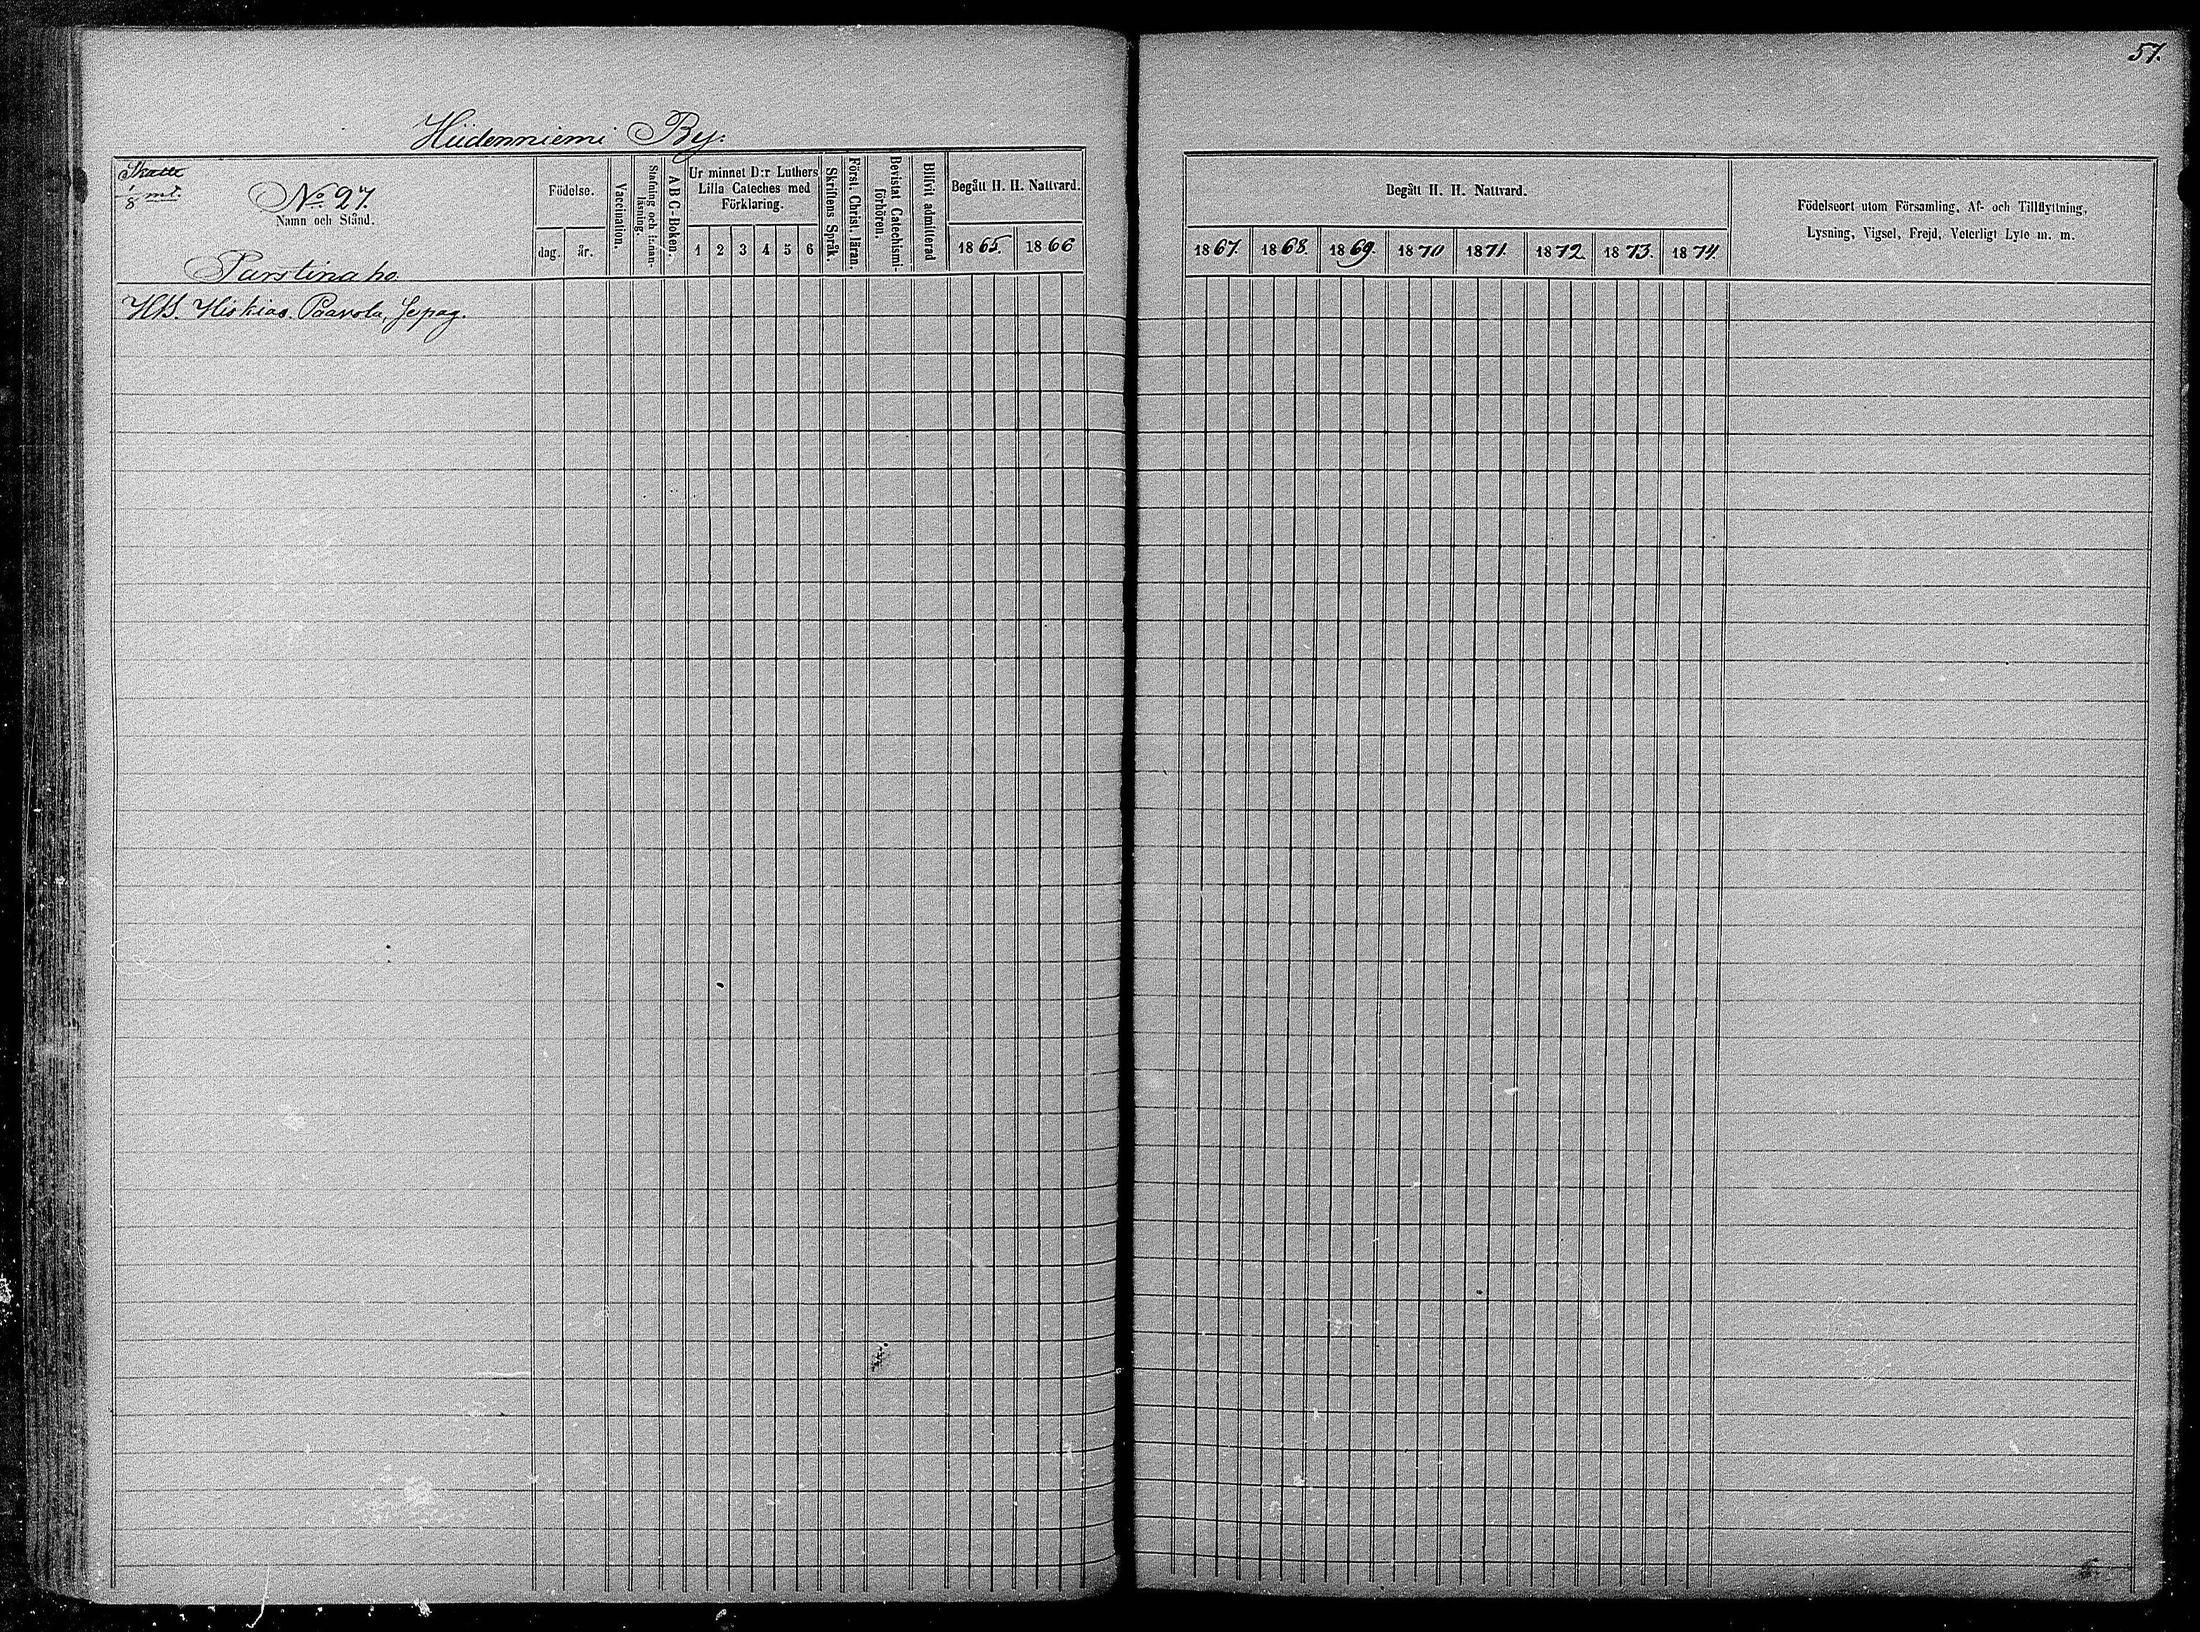 57.
Hiidenniemi By.
Skatte
1/8 mtl.
No 27.
Namn och Stånd.
Parstinaho.
Födelse.
dag. år.
Vaccination.
Stafning och Innanläsning.
A B C-Boken.
Ur minnet D:r Luthers
Lilla Cateches med
Förklaring.
1 2 3 4 5 6
Skriftens Språk.
Först. Christ. läran.
Bevistat Catechismi-
förhören.
Blifvit admitterad
Begått H. H. Nattvard.
1865. 1866
Begått H. H. Nattvard.
1867. 1868. 1869. 1870 1871. 1872 1873. 1874.
Födelseort utom Församling, Af- och Tillflyttning,
Lysning, Vigsel, Frejd, Veterligt Lyte m. m.
HB. Hiskias Paavola,